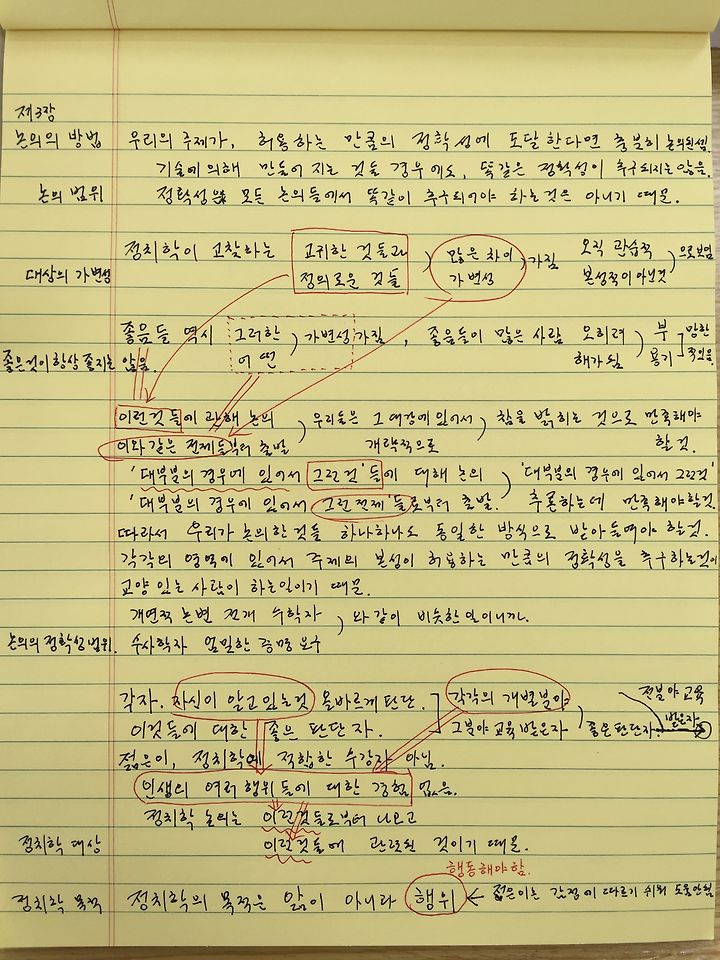 제3장
논의의 방법 우리의 주제가, 허용하는 만큼의 정확성에 도달한다면 충분히 논의된셈.
기술에 의해 만들어 지는 것들 경우에도, 똑같은 정확성이 추구되지는 않음.
논의 범위 정확성을 모든 논의들에서 똑같이 추구되어야 하는것은 아니기 때문.
정치학이 고찰하는 고귀한 것들과 ) 많은 차이 ) 가짐 오직 관습적 ) 으로보임
대상의 가변성 정의로운 것들 가변성 본성적이 아닌것
좋음들 역시 그러한 ) 가변성 가짐, 좋음들이 많은 사람 오히려 ) 부 ] 망한
좋은것이 항상 좋지는 않음. 어떤 해가 됨 용기 적있음.
이런것들에 관해 논의 ) 우리들은 그 여강에 있어서 ) 참을 밝히는 것으로 만족해야
이와 같은 전제들부터 출발 개략적으로 할 것.
'대부분의 경우에 있어서 그런것'들에 대해 논의 ) '대부분의 경우에 있어서 그런것'
'대부분의 경우에 있어서 그런전제'들로부터 출발. 추론하는데 만족해야할것.
따라서 우리가 논의한것들 하나하나도 동일한 방식으로 받아들여야 할것.
각각의 영역에 있어서 주제의 본성이 허용하는 만큼의 정확성을 추구하는것이
교양 있는 사람이 하는일이기 때문.
개연적 논변 전개 수학자 ) 와 같이 비슷한 일이니까.
논의의 정확성 범위. 수사학자 엄밀한 증명 요구
각자. 자신이 알고 있는것 올바르게 판단. ] 각각의 개별분야 전분야 교육
이것들에 대한 좋은 판단자. 그분야 교육 받은자 ) 좋은 판단자 받은자
젊은이, 정치학에 적합한 수강자 아님.
인생의 여러 행위들에 대한 경험 없음.
정치학 논의는 이런것들로부터 나오고
정치학 대상 이런것들에 관련된 것이기 때문.
행동해야함.
정치학 목적 정치학의 목적은 앎이 아니라 행위 ← 젊은이는 감정에 따르기 쉬워 도움안됨